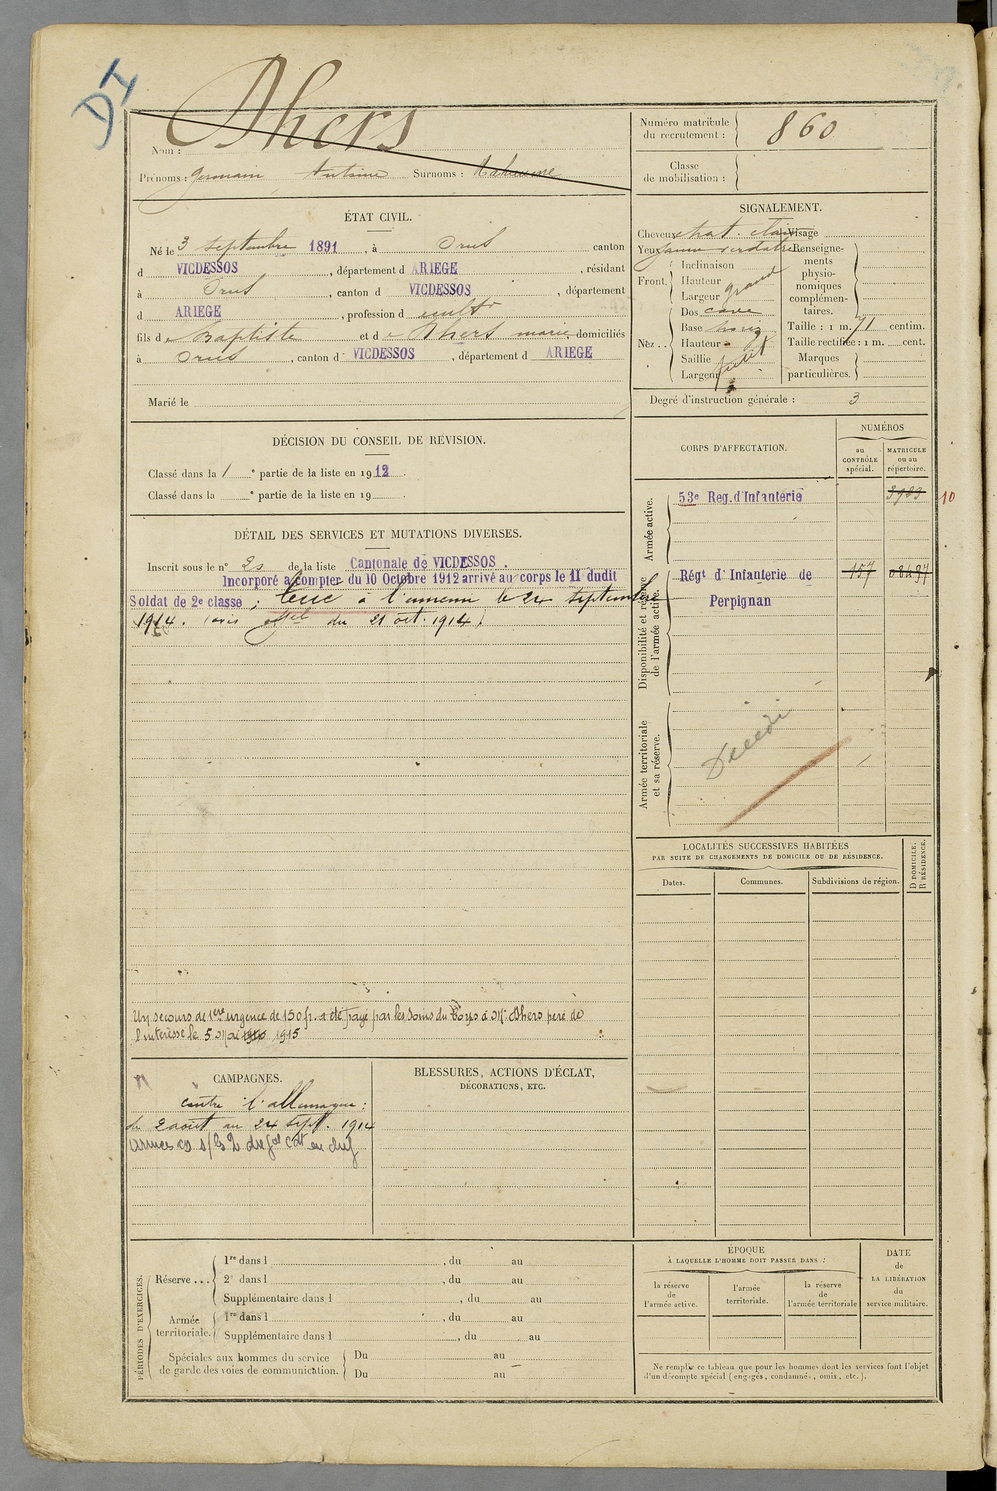 DI
Nom : Dhers
Prénoms : Germain Antoine Surnoms :
Numéro matricule du recrutement : 860
Classe de mobilisation :
ÉTAT CIVIL.
Né le 3 Septembre 1891, à Orus canton
d VICDESSOS, département d ARIEGE, résidant
à Orus, canton d VICDESSOS, département
d ARIEGE, profession d cultr
fils de Baptiste et de Dhers marie, domiciliés
à Orus, canton d VICDESSOS, département d ARIEGE
Marié le
SIGNALEMENT.
Cheveux chat. clair Visage
Yeux jaune verdâtre Renseignements physionomiques complémentaires.
Front. Inclinaison
Hauteur
Largeur grand
Nez .. Dos cave
Base horiz
Hauteur
Saillie petit
Largeur
Taille : 1 m. 71 centim.
Taille rectifiée : 1 m. cent.
Marques particulières.
Degré d'instruction générale : 3
DÉCISION DU CONSEIL DE RÉVISION.
Classé dans la 1 e partie de la liste en 1912.
Classé dans la e partie de la liste en 19 .
DÉTAIL DES SERVICES ET MUTATIONS DIVERSES.
Inscrit sous le n° 20 de la liste Cantonale de VICDESSOS.
Incorporé à compter du 10 Octobre 1912 arrivé au corps le 11 dudit
Soldat de 2e classe ; Tué à l'ennemi le 24 septembre
1914. (avis offel du 21 oct. 1914)
Un secours de 1ere urgence de 150 fr. a été payé par les soins du Corps à Mr Dhers père de
l'intéressé le 5 Mai 1915
CORPS D'AFFECTATION.
NUMÉROS
au CONTRÔLE spécial.
MATRICULE ou au répertoire.
Armée active.
53e Reg. d'Infanterie 3983
10
Disponibilité et réserve de l'armée active.
Régt d'Infanterie de 157 08497
Perpignan
Armée territoriale et sa réserve.
Décédé
LOCALITÉS SUCCESSIVES HABITÉES
PAR SUITE DE CHANGEMENTS DE DOMICILE OU DE RÉSIDENCE.
Dates. Communes. Subdivisions de région.
D DOMICILE. R RÉSIDENCE.
CAMPAGNES.
contre l'allemagne :
du 2 août au 24 sept. 1914
BLESSURES, ACTIONS D'ÉCLAT,
DÉCORATIONS, ETC.
PÉRIODES D'EXERCICES.
Réserve ... 1re dans l , du au
2e dans l , du au
Supplémentaire dans l , du au
Armée territoriale. 1re dans l , du au
Supplémentaire dans l , du au
Spéciales aux hommes du service de garde des voies de communication. Du au
Du au
ÉPOQUE
À LAQUELLE L'HOMME DOIT PASSER DANS :
la réserve de l'armée active.
l'armée territoriale.
la réserve de l'armée territoriale
DATE de LA LIBÉRATION du service militaire.
Ne remplir ce tableau que pour les hommes dont les services font l'objet
d'un décompte spécial (engagés, condamnés, omis, etc.).